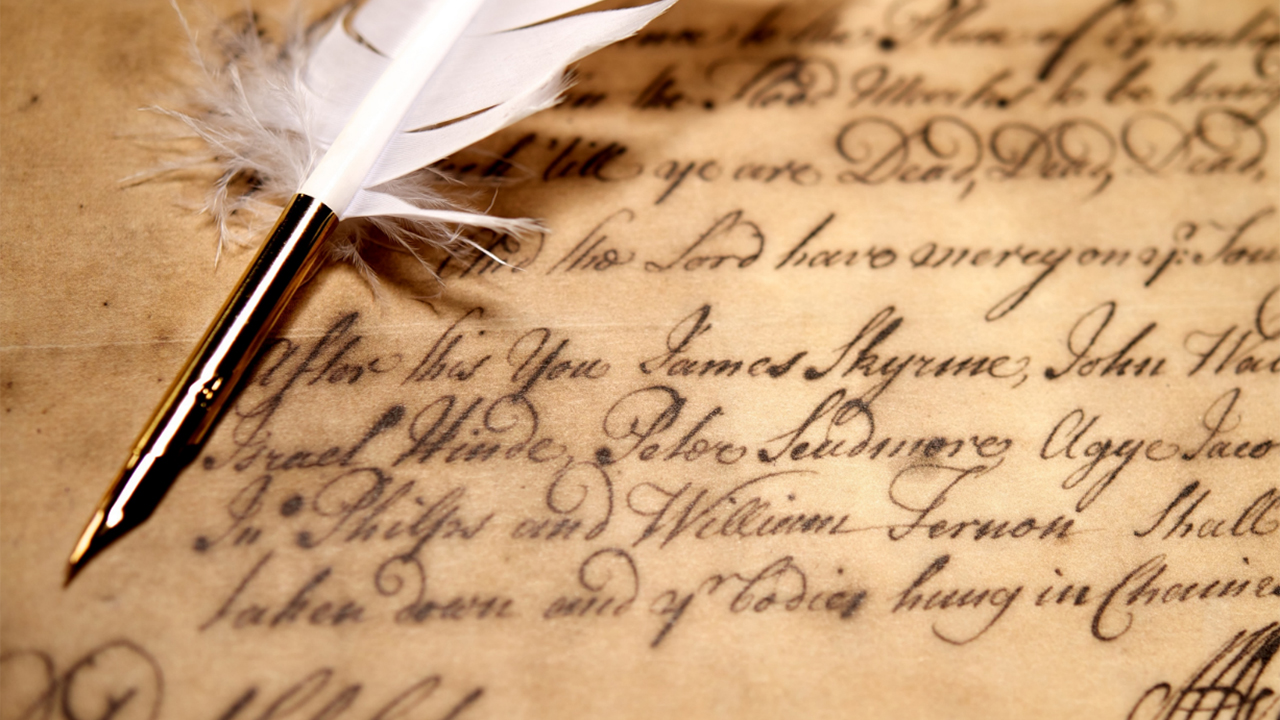 to the Place of
in the Flood Marks to be hung
'till ye are Dead, Dead, Dead,
And the Lord have mercy on yr. Sou
After this You James Skyrme, John Wa
Israel Hinde, Peter Scudmore Agge Jaco
Jn° Philps and William Fernon Shall
taken down and yr bodies hung in Chaine